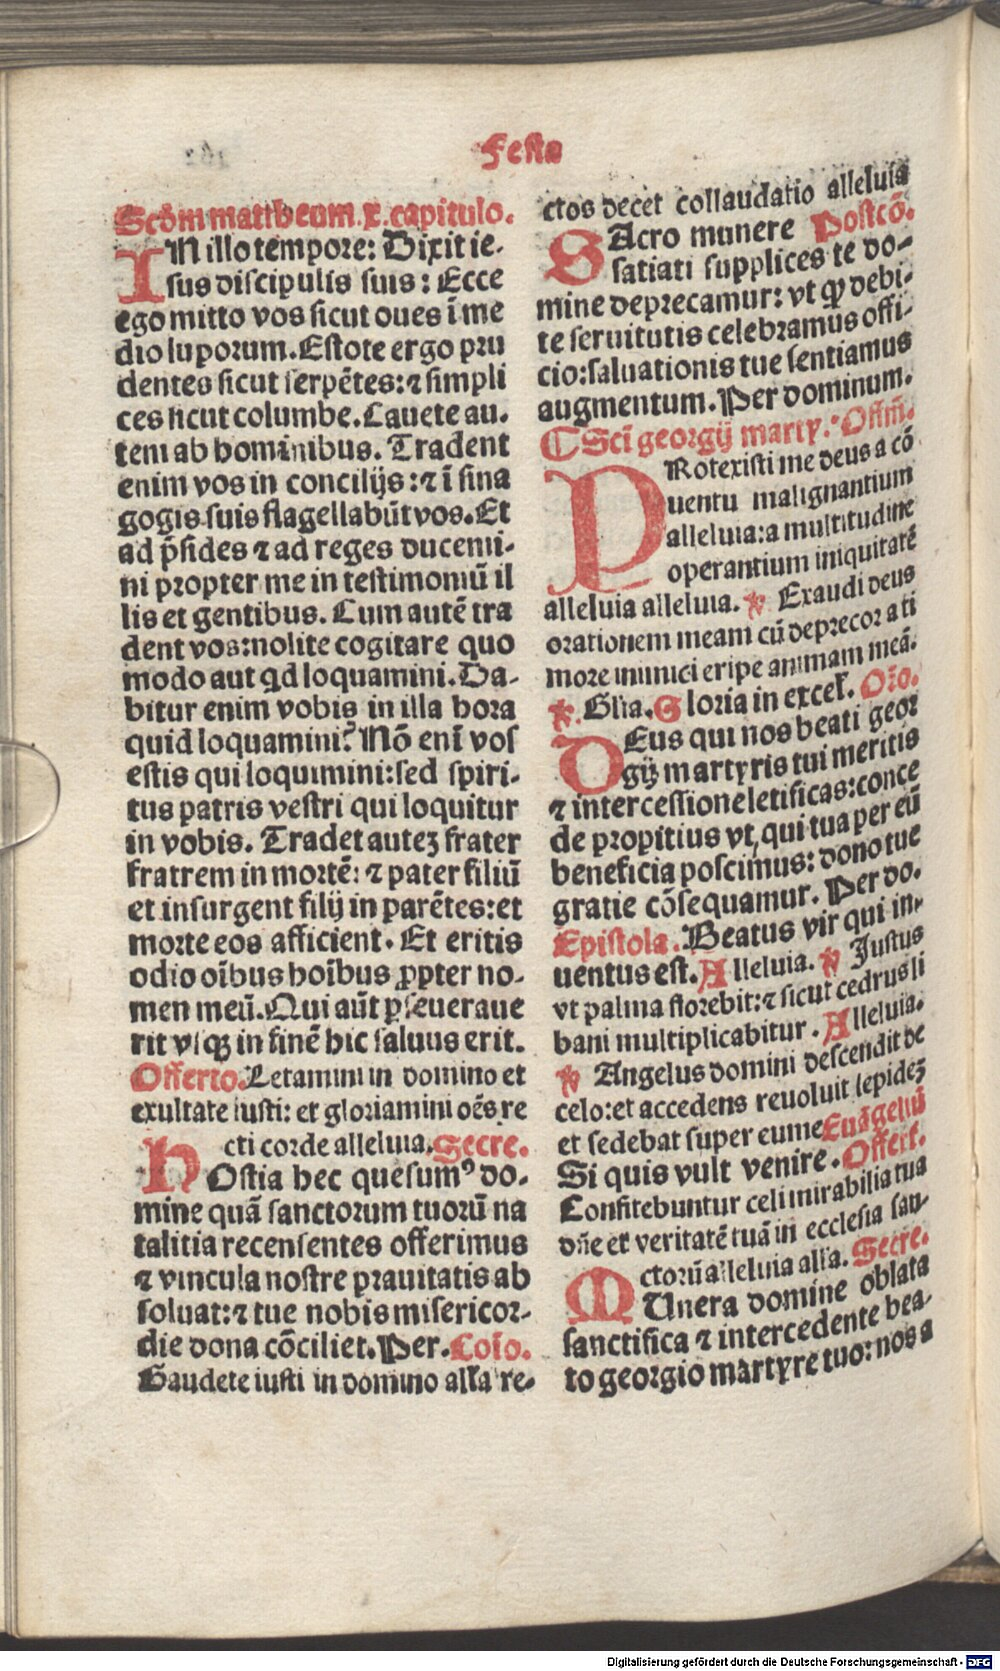 Festa
Scđm mattheum .x. capitulo.
IN illo tempore: Dixit ie-
sus discipulis suis: Ecce
ego mitto vos sicut oues ī me
dio luporum. Estote ergo pru
dentes sicut serpētes: ⁊ simpli
ces sicut columbe. Cauete au-
tem ab hominibus. Tradent
enim vos in concilijs: ⁊ ī sina
gogis suis flagellabūt vos. Et
ad p̄sides ⁊ ad reges ducemi-
ni propter me in testimoniū il
lis et gentibus. Cum autē tra
dent vos: nolite cogitare quo
modo aut qd loquamini. Da-
bitur enim vobis in illa hora
quid loquamini? Nō enī vos
estis qui loquimini: sed spiri-
tus patris vestri qui loquitur
in vobis. Tradet autez frater
fratrem in mortē: ⁊ pater filiū
et insurgent filij in parētes: et
morte eos afficient. Et eritis
odio oībus hoībus ꝓpter no-
men meū. Qui aūt ꝑseueraue
rit vsqꝫ in finē hic saluus erit.
Offerto. Letamini in domino et
exultate iusti: et gloriamini oēs re
cti corde alleluia. Secre.
HOstia hec quesumꝰ do-
mine quā sanctorum tuorū na
talitia recensentes offerimus
⁊ vincula nostre prauitatis ab
soluat: ⁊ tue nobis misericor-
die dona cōciliet. Per. Coīo.
Gaudete iusti in domino alla re-
ctos decet collaudatio alleluia
Postcō.
SAcro munere
satiati supplices te do-
mine deprecamur: vt qꝫ debi-
te seruitutis celebramus offi-
cio: saluationis tue sentiamus
augmentum. Per dominum.
¶ Scī georgij martyr. Offm̄.
PRotexisti me deus a cō
uentu malignantium
alleluia: a multitudine
operantium iniquitatē
alleluia alleluia. ℣ Exaudi deus
orationem meam cū deprecor a ti
more inimici eripe animam meā.
℣. Glia. Gloria in excel. Orō.
DEus qui nos beati geor
gij martyris tui meritis
⁊ intercessione letificas: conce
de propitius vt, qui tua per eū
beneficia poscimus: dono tue
gratie cōsequamur. Per do.
Epistola. Beatus vir qui in-
uentus est. Alleluia. ℣ Justus
vt palma florebit: ⁊ sicut cedrus li
bani multiplicabitur. Alleluia.
℣ Angelus domini descendit de
celo: et accedens reuoluit lapidez
et sedebat super eum Euāgeliū
Si quis vult venire. Offert.
Confitebuntur celi mirabilia tua
dn̄e et veritatē tuā in ecclesia san-
ctorū alleluia alla. Secre.
MUnera domine oblata
sanctifica ⁊ intercedente bea-
to georgio martyre tuo: nos a
Digitalisierung gefördert durch die Deutsche Forschungsgemeinschaft - DFG